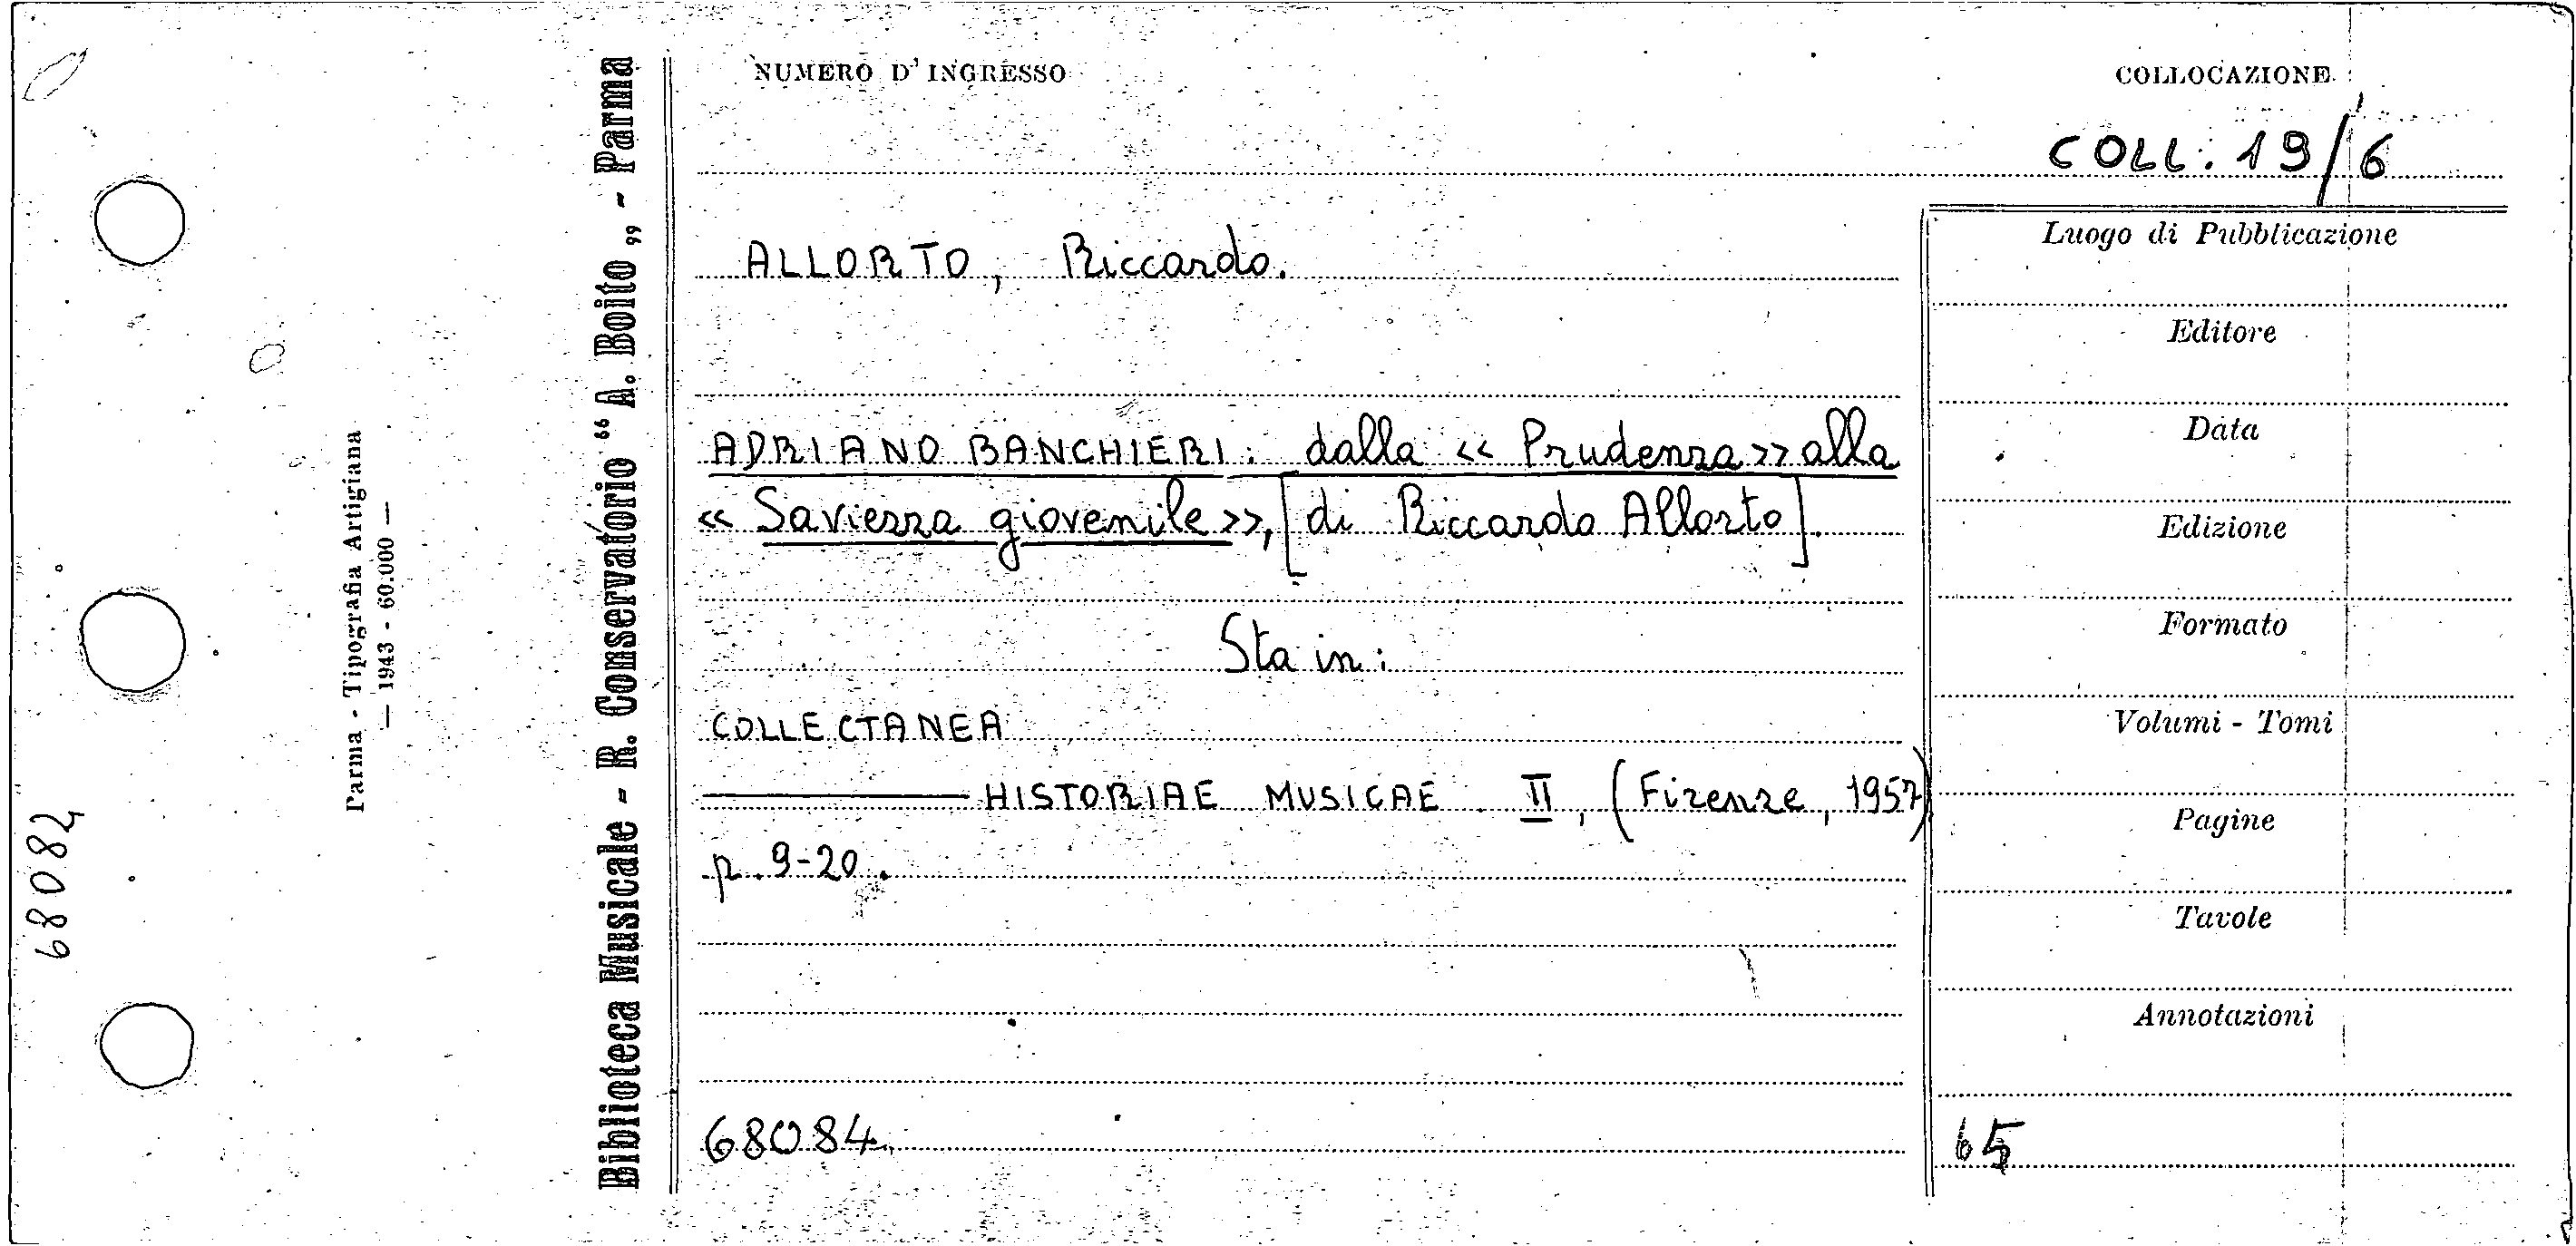 NUMERO D'INGRESSO
COLLOCAZIONE
COLL. 19/6
ALLORTO, Riccardo.
ADRIANO BANCHIERI: dalla « Prudenza» alla
« Saviezza giovenile», [di Riccardo Allorto].
Sta in:
COLLECTANEA
——— HISTORIAE MUSICAE II, (Firenze, 1957)
p. 9-20.
68084
Luogo di Pubblicazione
Editore
Data
Edizione
Formato
Volumi - Tomi
Pagine
Tavole
Annotazioni
65
Biblioteca Musicale - R. Conservatorio “ A. Boito „ - Parma
Parma - Tipografia Artigiana
— 1943 - 60.000 —
68082